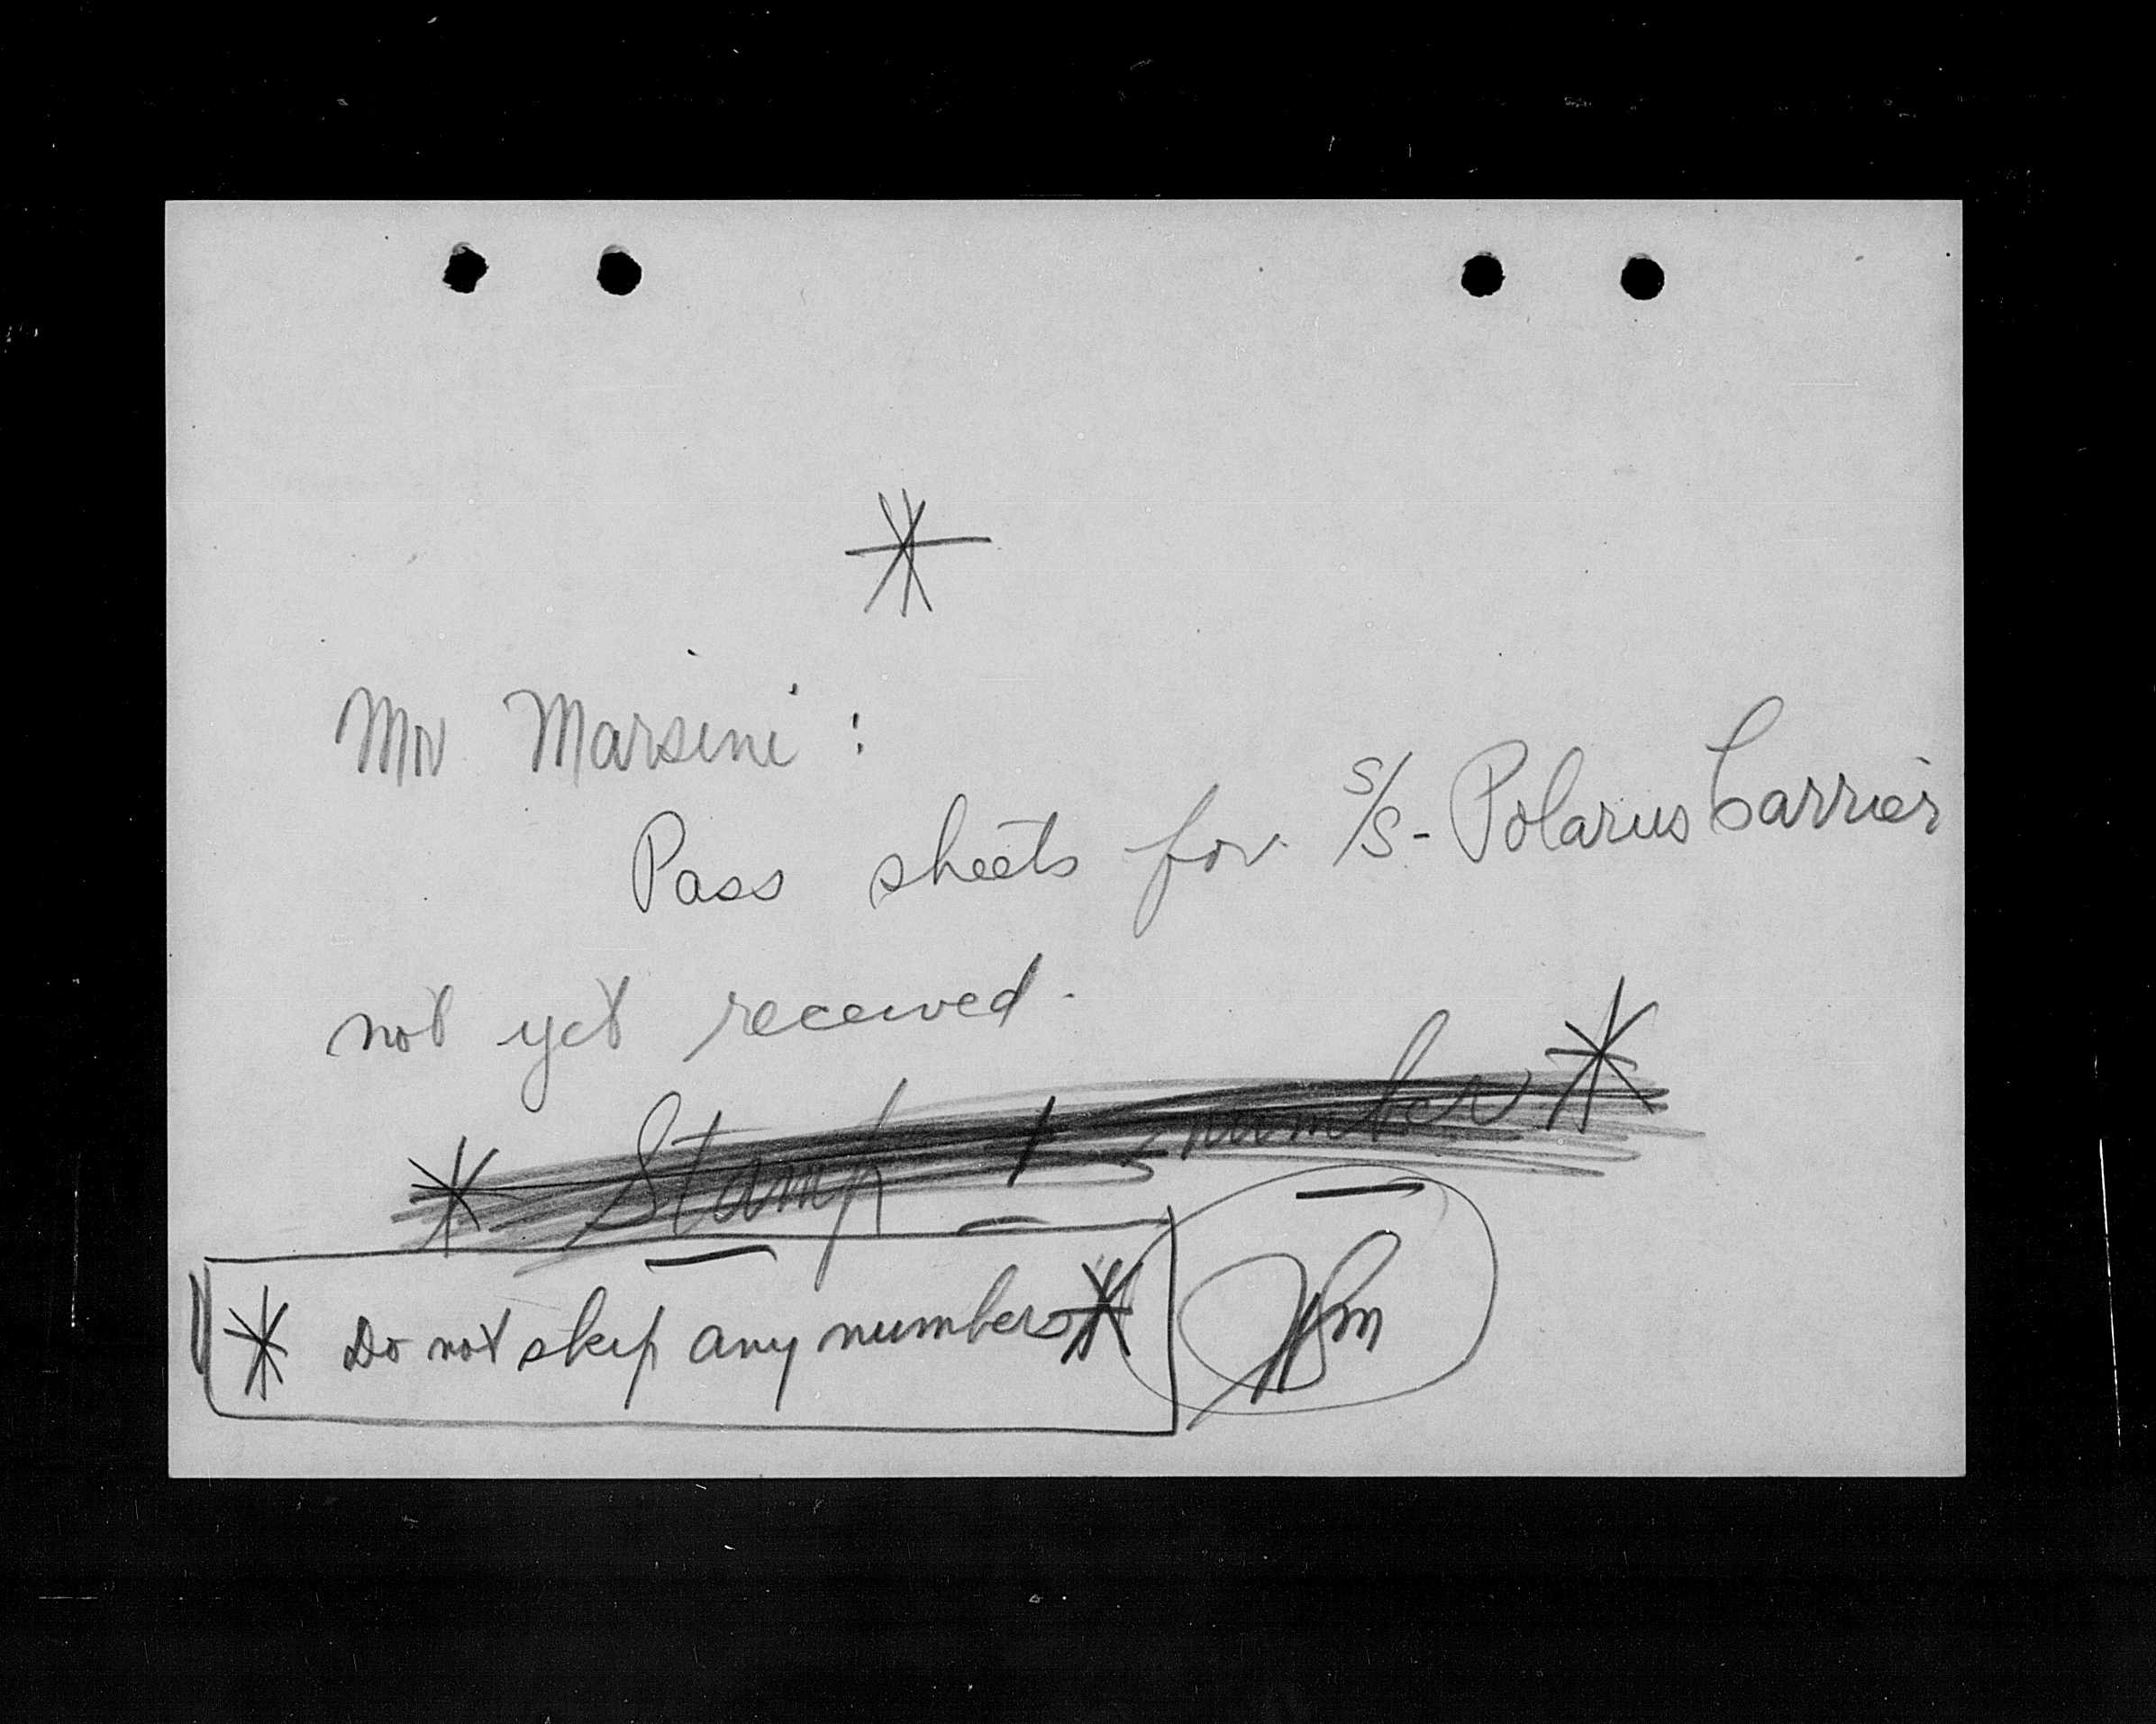 *
Mr Marsini :
Pass sheets for S/S - Polarus Carrier
not yet received.
* Stamp 1 number *
* Do not skip any numbers *